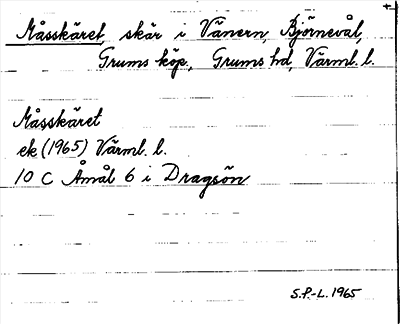 Måsskäret, skär i Vänern, Björnevål,
Grums köp., Grums hd, Värml. l.
Måsskäret
ek (1965) Värml. l.
10 C Åmål 6 i Dragsön
S.P.-L. 1965